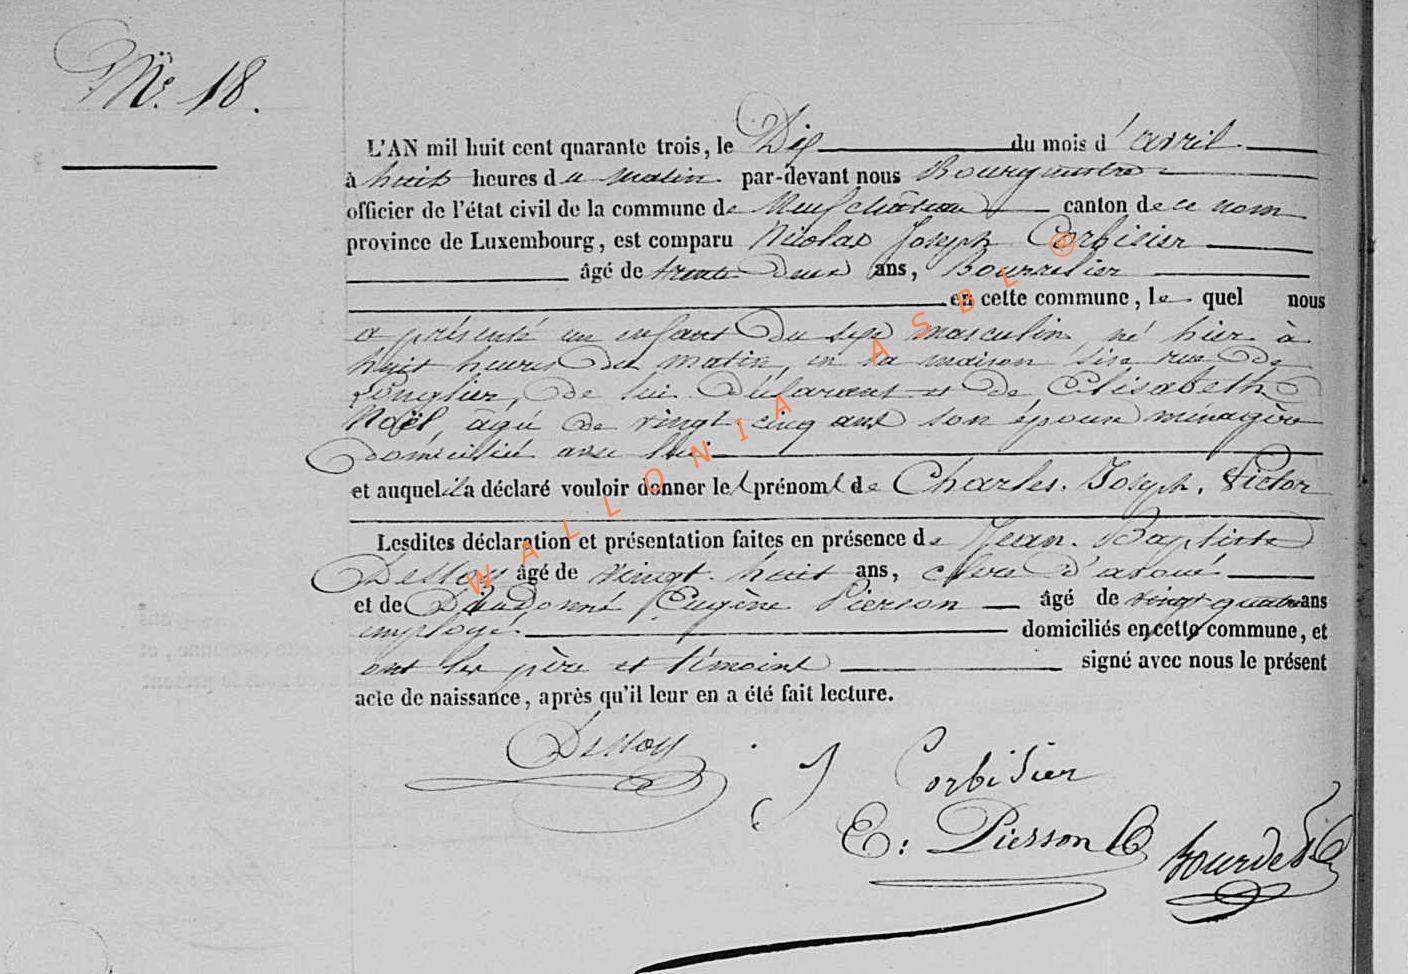 No. 18.
L'AN mil huit cent quarante trois, le Dix du mois d'avril
à huit heures du matin par-devant nous Bourgmestre
officier de l'état civil de la commune de Neufchâteau canton de ce nom
province de Luxembourg, est comparu Nicolas Joseph Corbisier
âgé de trente deux ans, Bourrelier
en cette commune, le quel nous
a présenté un enfant du sexe masculin, né hier à
huit heures du matin, en sa maison sise rue de
Longlier, de lui déclarant et de Elisabeth
Noël, âgée de vingt cinq ans son épouse ménagère
domiciliée avec lui
et auquel il a déclaré vouloir donner les prénoms de Charles, Joseph, Victor
Lesdites déclaration et présentation faites en présence de Jean-Baptiste
Dessoy âgé de vingt-huit ans, clerc d'avoué
et de Dieudonné Eugène Pierson âgé de vingt quatre ans
employé domiciliés en cette commune, et
ont les père et témoins signé avec nous le présent
acte de naissance, après qu'il leur en a été fait lecture.
Dessoy
J Corbisier
E: Pierson
WALLONIA ASBL ®